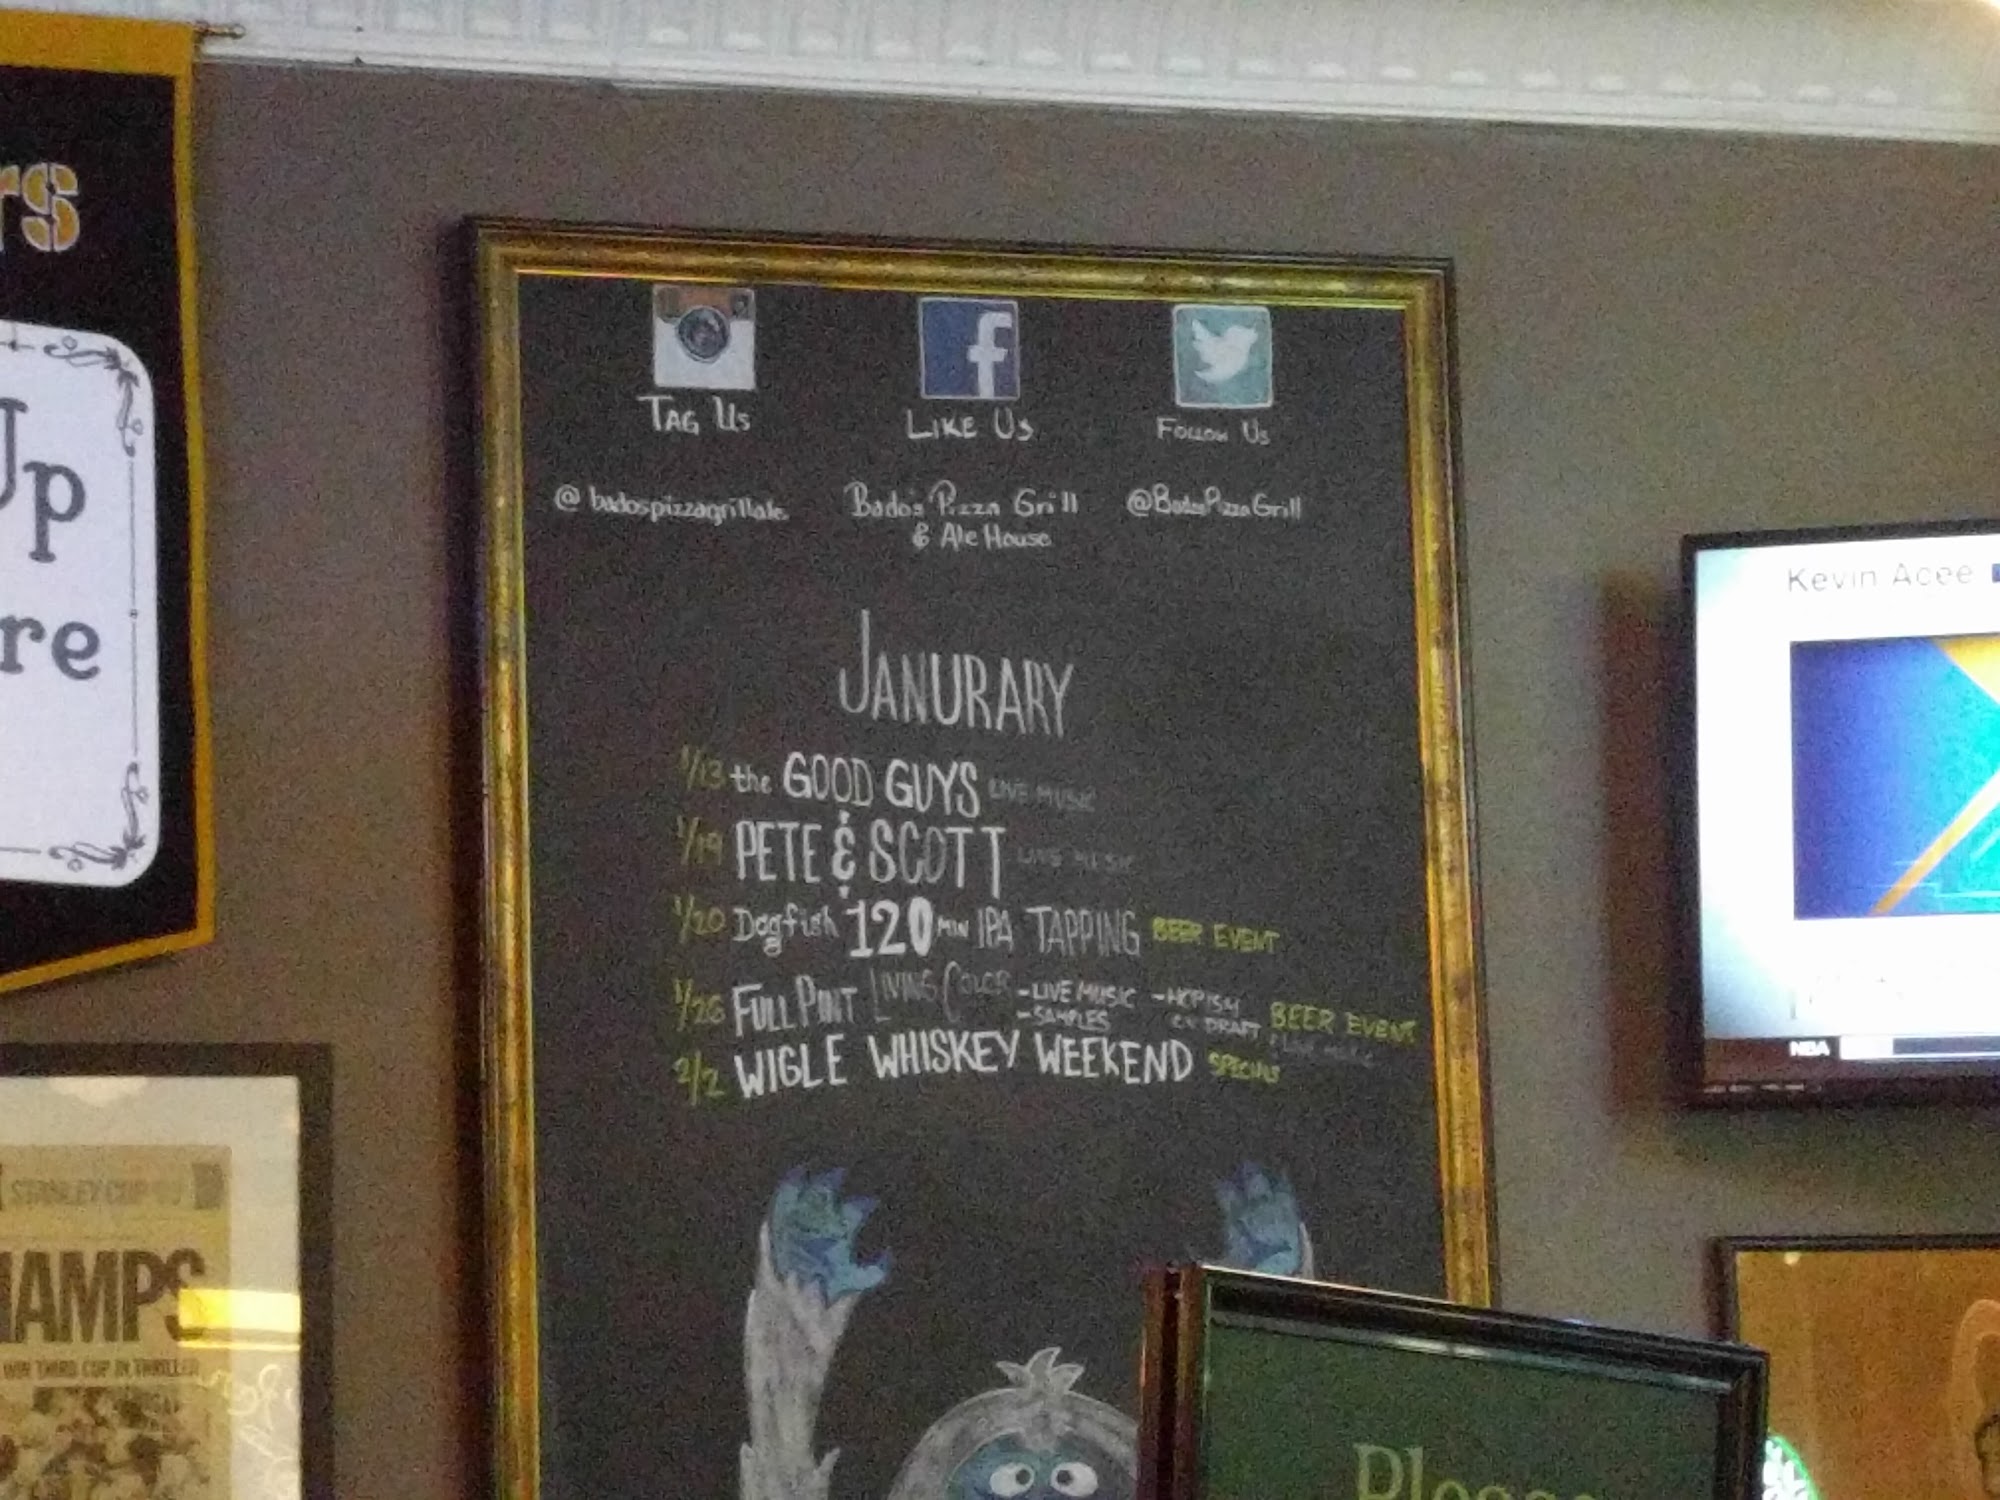 rs
Up
re
TAG US
LIKE US
FOLLOW US
@badospizzagrillale
Bado's Pizza Grill
& Ale House
@BadosPizzaGrill
JANURARY
1/13 the GOOD GUYS LIVE MUSIC
1/19 PETE & SCOTT LIVE MUSIC
1/20 Dogfish 120 MIN IPA TAPPING BEER EVENT
1/26 FULL PINT LIVING COLOR -LIVE MUSIC -HOPISM
-SAMPLES ON DRAFT BEER EVENT
2/2 WIGLE WHISKEY WEEKEND SPECIALS
Kevin Acee
NBA
STANLEY CUP
HAMPS
WIN THIRD CUP IN THRILLER
Please